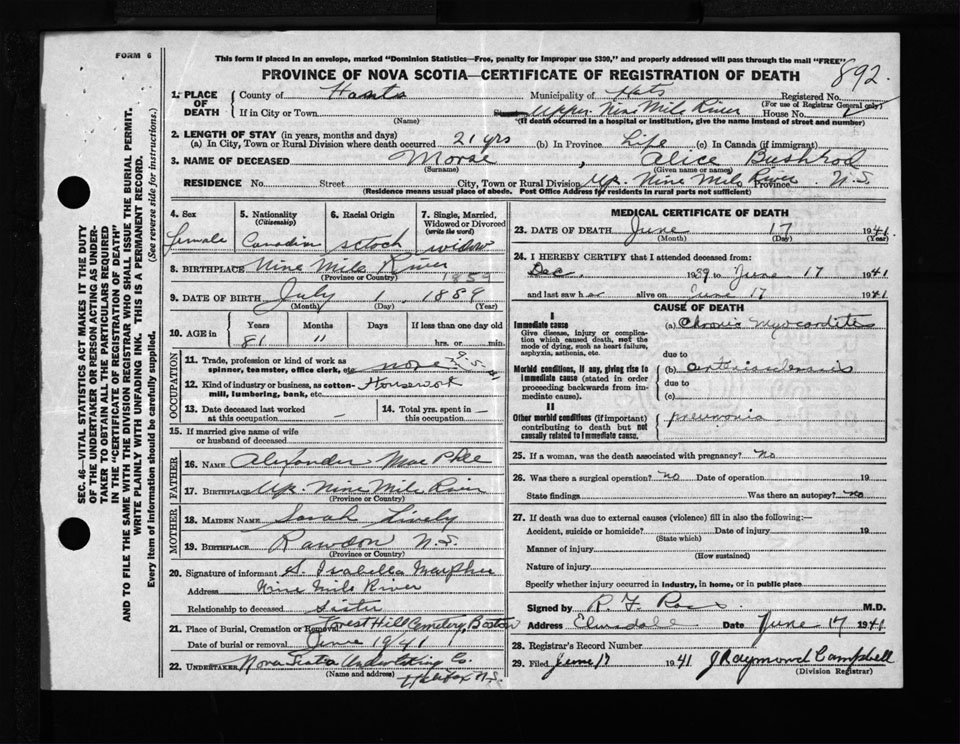 FORM 6
This form if placed in an envelope, marked "Dominion Statistics—Free, penalty for improper use $300," and properly addressed will pass through the mail "FREE"
PROVINCE OF NOVA SCOTIA—CERTIFICATE OF REGISTRATION OF DEATH
892
1. PLACE OF DEATH
County of Hants Municipality of Hats Registered No.
(For use of Registrar General only)
If in City or Town Street Upper Nine Mile River House No.
(Name) (If death occurred in a hospital or institution, give the name instead of street and number)
2. LENGTH OF STAY (in years, months and days)
(a) In City, Town or Rural Division where death occurred 21 yrs (b) In Province Life (c) In Canada (if immigrant)
3. NAME OF DECEASED Morse , Alice Bushrod
(Surname) (Given name or names)
RESIDENCE No. Street City, Town or Rural Division Up. Nine Mile River Province N.S
(Residence means usual place of abode. Post Office Address for residents in rural parts not sufficient)
4. Sex female
5. Nationality (Citizenship) Canadian
6. Racial Origin sctoch
7. Single, Married, Widowed or Divorced (write the word) widow
8. BIRTHPLACE Nine Mile River
(Province or Country)
1859
9. DATE OF BIRTH July 1 1889
(Month) (Day) (Year)
10. AGE in Years Months Days If less than one day old
81 11 hrs. or min.
OCCUPATION
11. Trade, profession or kind of work as spinner, teamster, office clerk, etc. none
12. Kind of industry or business, as cotton-mill, lumbering, bank, etc. Housework
13. Date deceased last worked at this occupation —
14. Total yrs. spent in this occupation —
15. If married give name of wife or husband of deceased
FATHER
16. NAME Alexander Mac Phee
17. BIRTHPLACE Up. Nine Mile River
(Province or Country)
MOTHER
18. MAIDEN NAME Sarah Lively
19. BIRTHPLACE Rawdon N.S.
(Province or Country)
20. Signature of informant S. Isabella
Address Nine Mile River
Relationship to deceased Sister
21. Place of Burial, Cremation or Removal Forest Hill Cemetery, Boston
Date of burial or removal June 1941
22. UNDERTAKER Nova Scotia Undertaking Co.
(Name and address) Halifax N.S.
MEDICAL CERTIFICATE OF DEATH
23. DATE OF DEATH June 17 1941
(Month) (Day) (Year)
24. I HEREBY CERTIFY that I attended deceased from:
Dec. 1939 to June 17 1941
and last saw her alive on June 17 1941
CAUSE OF DEATH
I
Immediate cause
Give disease, injury or complication which caused death, not the mode of dying, such as heart failure, asphyxia, asthenia, etc.
(a) Chronic Myocarditis
due to
Morbid conditions, if any, giving rise to immediate cause (stated in order proceeding backwards from immediate cause)
(b) arteriosclerosis
due to
(c)
II
Other morbid conditions (if important) contributing to death but not causally related to immediate cause.
pneumonia
25. If a woman, was the death associated with pregnancy? no
26. Was there a surgical operation? no Date of operation 19
State findings Was there an autopsy? no
27. If death was due to external causes (violence) fill in also the following:—
Accident, suicide or homicide? Date of injury 19
(State which)
Manner of injury
(How sustained)
Nature of injury
Specify whether injury occurred in industry, in home, or in public place
Signed by R. F. Ross M.D.
Address Elmsdale Date June 17 1941
28. Registrar's Record Number
29. Filed June 17 1941 J Raymond Campbell
(Division Registrar)
SEC. 46—VITAL STATISTICS ACT MAKES IT THE DUTY
OF THE UNDERTAKER OR PERSON ACTING AS UNDER-
TAKER TO OBTAIN ALL THE PARTICULARS REQUIRED
IN THE "CERTIFICATE OF REGISTRATION OF DEATH"
AND TO FILE THE SAME WITH THE DIVISION REGISTRAR WHO SHALL ISSUE THE BURIAL PERMIT.
WRITE PLAINLY WITH UNFADING INK. THIS IS A PERMANENT RECORD.
Every item of information should be carefully supplied. (See reverse side for instructions.)